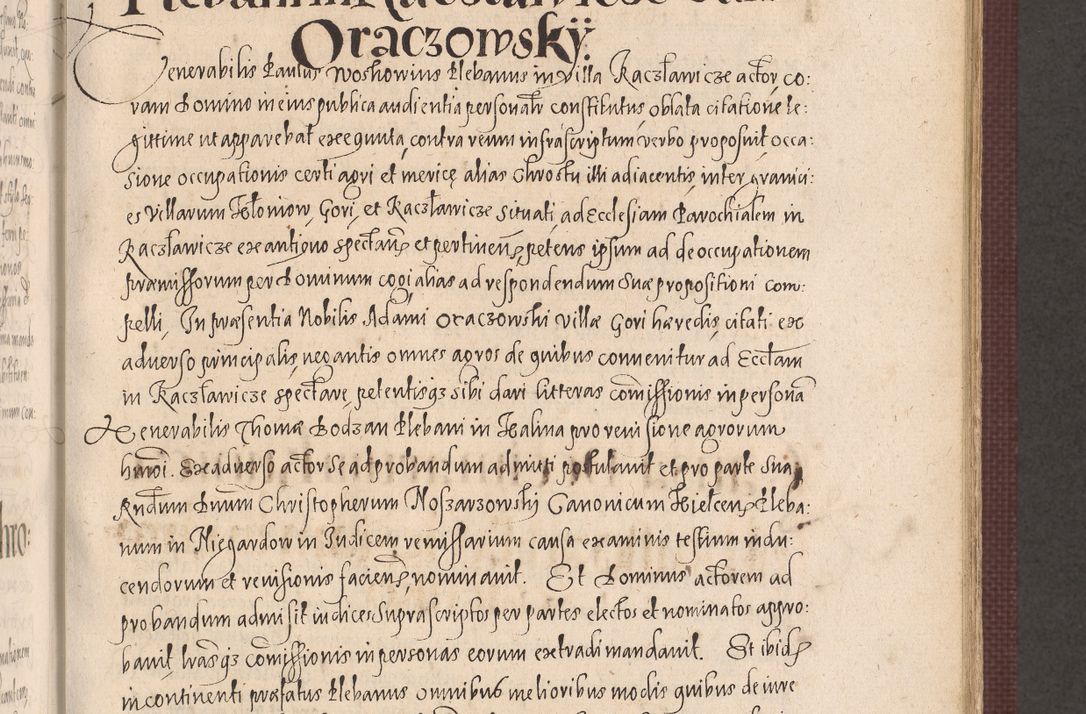 Plebani in Raczławicze cum
Oraczowskÿ.
Venerabilis Paulus Woszkowius Plebanus in Villa Raczławicze actor, co:
ram Domino in eius publica audientia personalr constitutus oblata citatione le:
gittime ut apparebat exequuta, contra reum infrascriptum verbo proposuit, occa:
sione occupationis certi agri et mericę alias Chrostu illi adiacentis, inter granici:
es Villarum Kłoniow, Gori, et Raczławicze situati, ad Ecclesiam Parochialem in
Raczławicze ex antiquo spectan. et pertinen., petens ipsum ad deoccupationem
præmissorum per Dominum cogi, alias ad respondendum suæ propositioni com:
pelli, In præsentia Nobilis Adami Oraczowski Villæ Gori hæredis, citati ex
adverso principalis, negantis omnes agros de quibus convenitur ad Eccłam
in Raczławicze spectare, petentisqz sibi dari litteras comissionis in persona
Venerabilis Thomæ Bodzan Plebani in Kalina pro revisione agrorum
hmoi. Ex adverso actor se ad probandum admitti postulavit et pro parte sua,
Rndum Dnum Christopherum Noszarzowski Canonicum Kielcen. Pleba:
num in Niegardow in Judicem remissarium causa examinis testium indu:
cendorum et revisionis facien., nominavit. Et Dominus actorem ad
probandum admisit iudices suprascriptos per partes electos et nominatos appro:
bavit, lrasqz comissionis in personas eorum extradi mandavit. Et ibid.
in continenti præfatus Plebanus omnibus melioribus modis quibus de iure